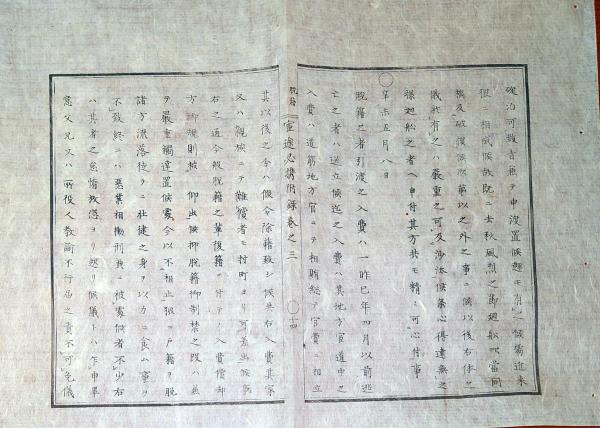 碇泊可致旨兼テ申渡置候趣モ有之候処近来
猥ニ相成候故既ニ去秋風烈之節廻船吹当同
機及破復候次第以之外之事ニ候以後右体之
儀於有之ハ厳重之可及沙汰候条心得違無之
様廻船之者ヘ申付其方共モ精々可心付事
○
辛未五月八日
脱籍之者引渡之入費ハ一昨巳年四月以前逃
亡之者ハ送立候迄之入費ハ其地方官道中之
入費ハ道筋地方官ニテ相賄総テ官費ニ相立
脱籍
官途必携附録巻之三
○四
其以後之分ハ仮令除籍致シ候共右入費其家
又ハ親族ニテ難償者モ村町ヨリ可差出候第
右之通今般脱籍之輩復籍ニ付テノ入費償却
方御規則被 仰出候抑脱籍御制禁之段ハ兼
テ厳重触達置候処今以不相止猥ニ戸籍ヲ脱
諸方流落徒ラニ壮健之身ヲ以力ニ食ム事ヲ
不致終ニハ悪業相働刑典ニ被処候者不少右
ハ其者之怠惰放逸ヨリ起リ候儀トハ乍申畢
竟父兄又ハ所役人教諭不行届之責不可免儀